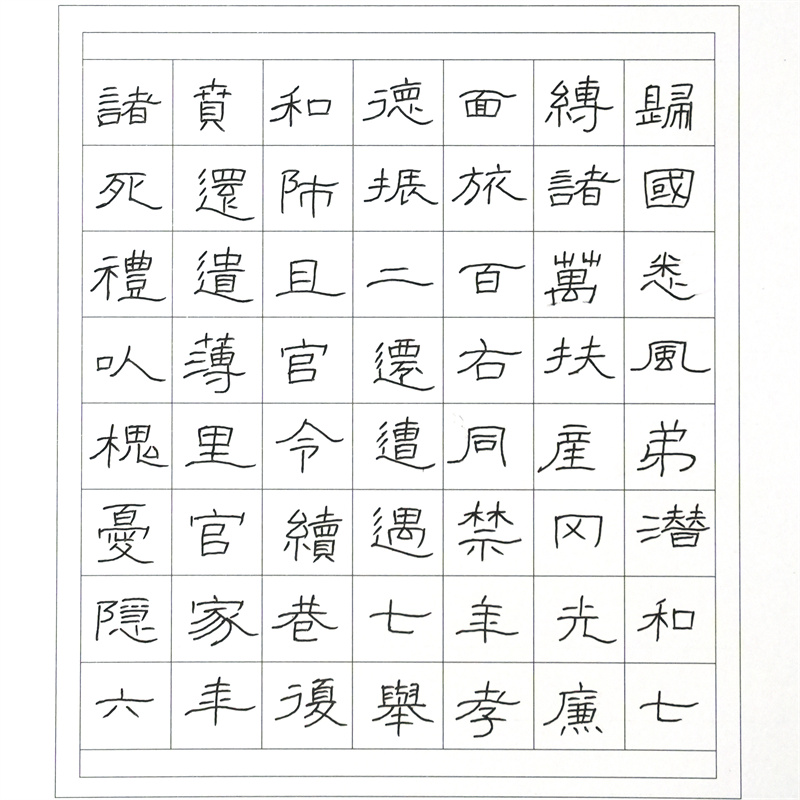 諸賁和德面縛歸
死還師振旅諸國
禮遺且二百萬悉
以薄官遷右扶風
槐里令遭同産弟
憂官續遇禁冈潛
隱家巷七年光和
六年復舉孝廉七